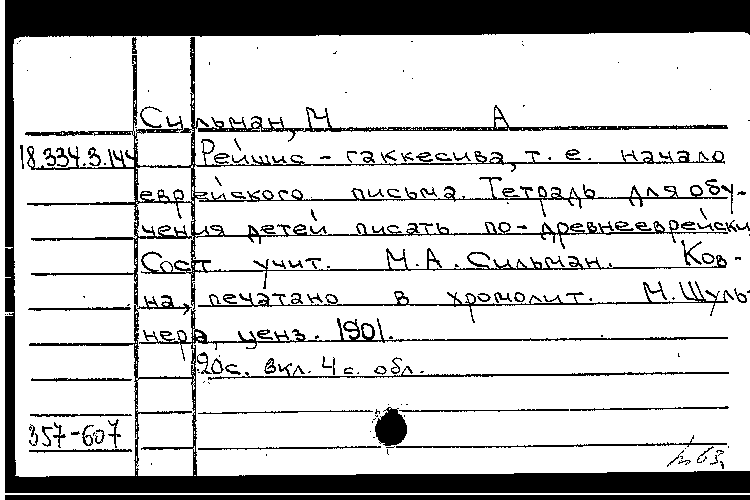 Сильман, М А
18.334.3.144 Рейшис - гаккесива, т. е. начало
еврейского письма. Тетрадь для обу-
чения детей писать по-древнееврейски
Сост учит. М.А. Сильман. Ков-
на, печатано в хромолит. М. Шуль-
нера, ценз. 1901.
20с. вкл. 4 с. обл.
357-607
63,